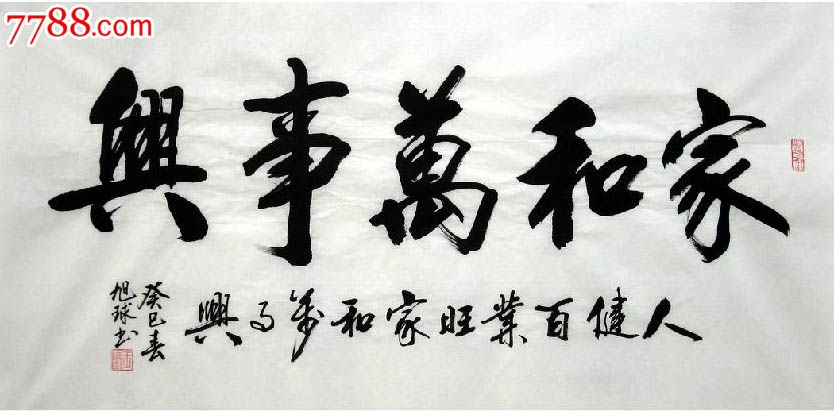 7788.com
家和萬事興
人健百業旺家和萬事興
癸巳春
旭球书